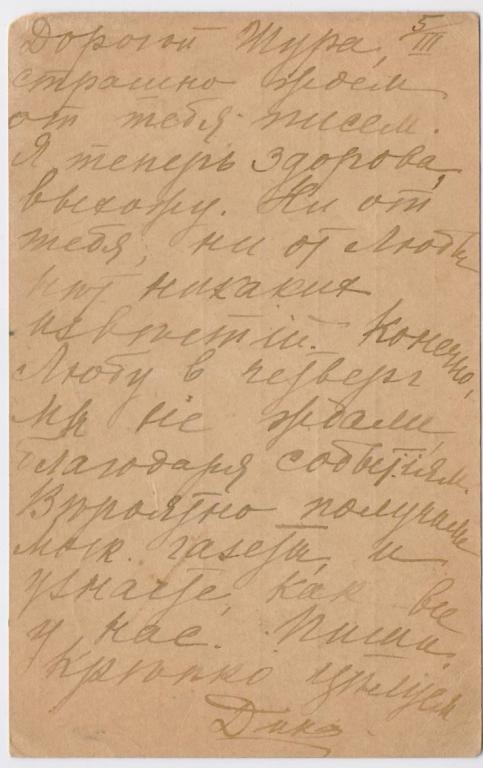 Дорогой Шура, 5/III
страшно ждем
от тебя писем.
Я теперь здорова,
выхожу. Ни от
тебя, ни от Любы
нѣт никаких
извѣстій. Конечно,
Любу в четверг
мы не ждали,
благодаря событіям.
Вѣроятно получили
моск. газеты и
узнаете, как все
у нас. Пиши.
Крѣпко цѣлуем